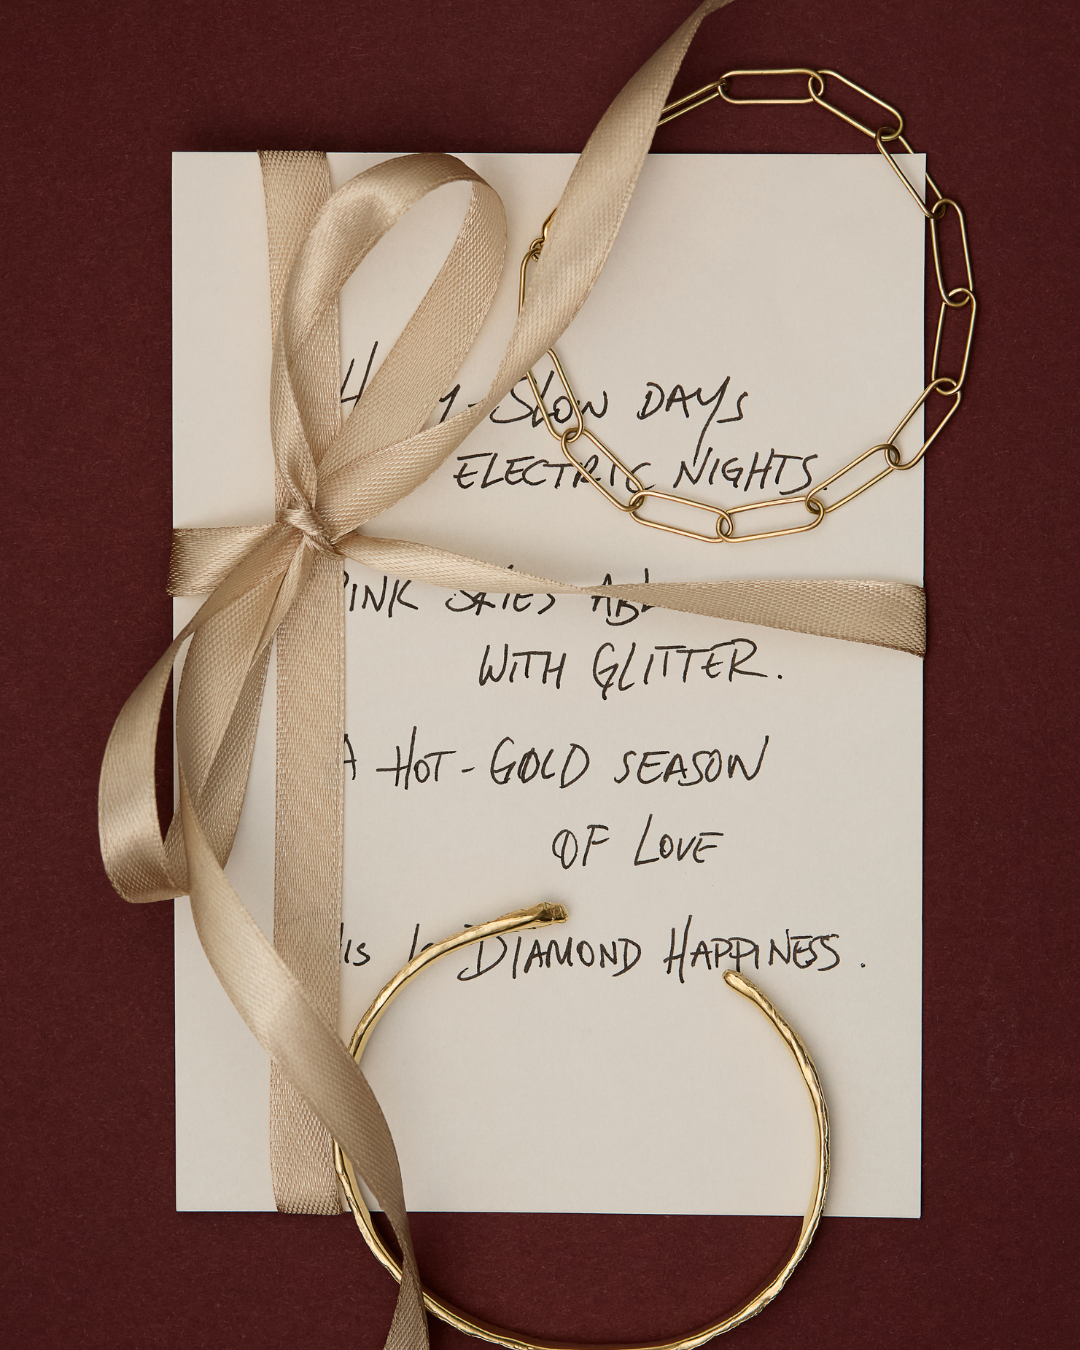 -Slow DAYS
ELECTRIC NIGHTS.
PINK SKIES
WITH GLITTER.
A HOT-GOLD SEASON
OF LOVE
DIAMOND HAPPINESS.